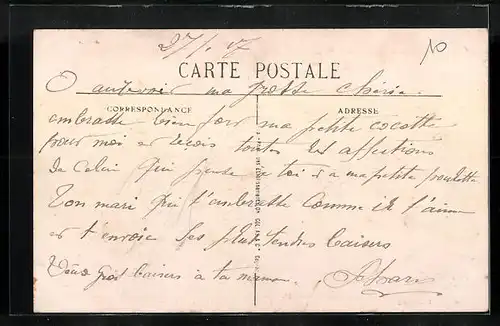 27/1 17
10
CARTE POSTALE
O aurevoir ma grosse cherie
CORRESPONDANCE
ADRESSE
embrasse bien fort ma petite cocotte
pour moi et recois toutes les affections
de celui qui pense a toi et a ma petite poulette
Ton mari qui t'embrasse comme il t'aime
et t'envoie ses plus tendres baisers
gros baisers à ta maman